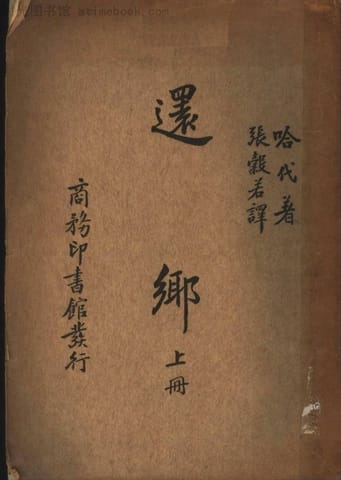 图书馆 atimebook.com
哈代著
張穀若譯
還鄉
上冊
商務印書館發行